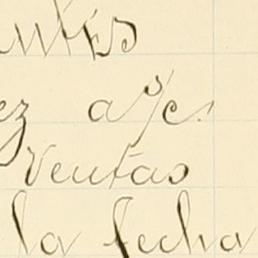 ez a/c.
Ventas
la fecha